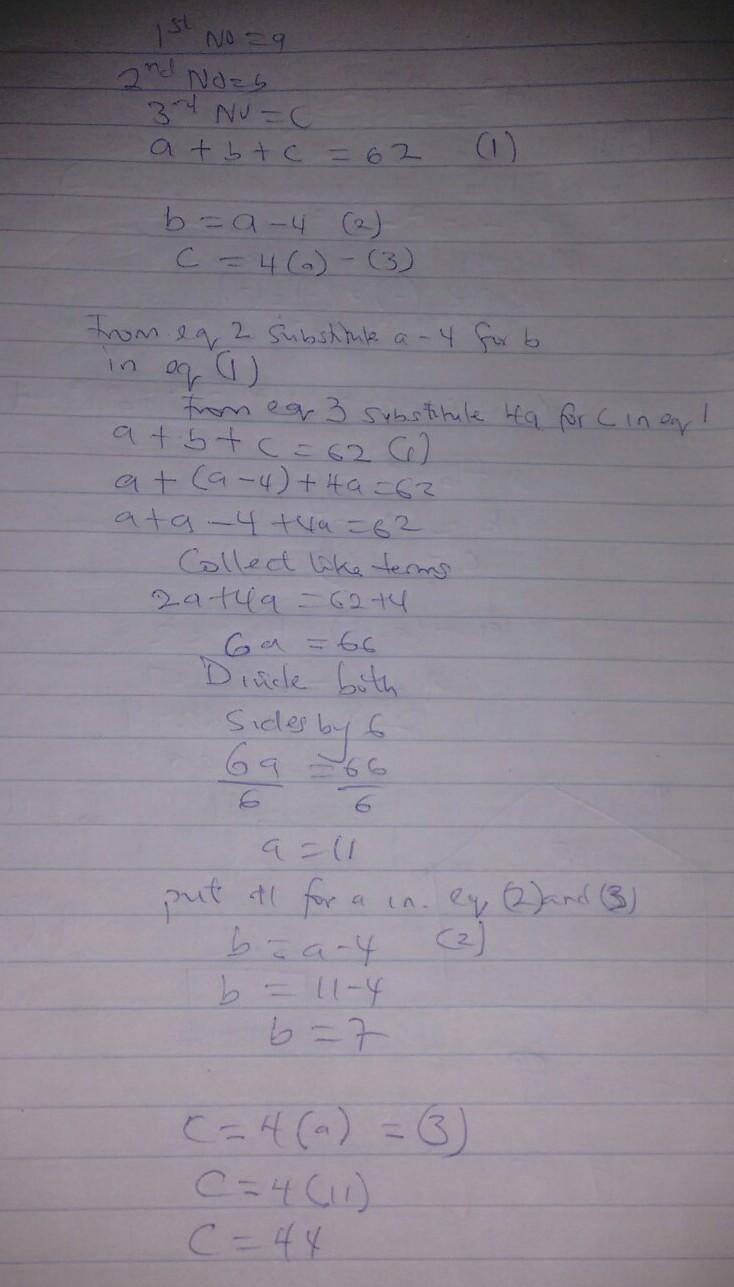 1st No = a
2nd No = b
3rd No = C
a + b + c = 62 (1)
b = a - 4 (2)
C = 4(a) - (3)
From eq 2 substitute a - 4 for b
in eq (1)
From eq 3 substitute 4a for C in eq 1
a + b + c = 62 (1)
a + (a - 4) + 4a = 62
a + a - 4 + 4a = 62
Collect like terms
2a + 4a = 62 + 4
6a = 66
Divide both
Sides by 6
6a = 66
6 6
a = 11
put 11 for a in. eq (2) and (3)
b = a - 4 (2)
b = 11 - 4
b = 7
C = 4(a) = (3)
C = 4(11)
C = 44